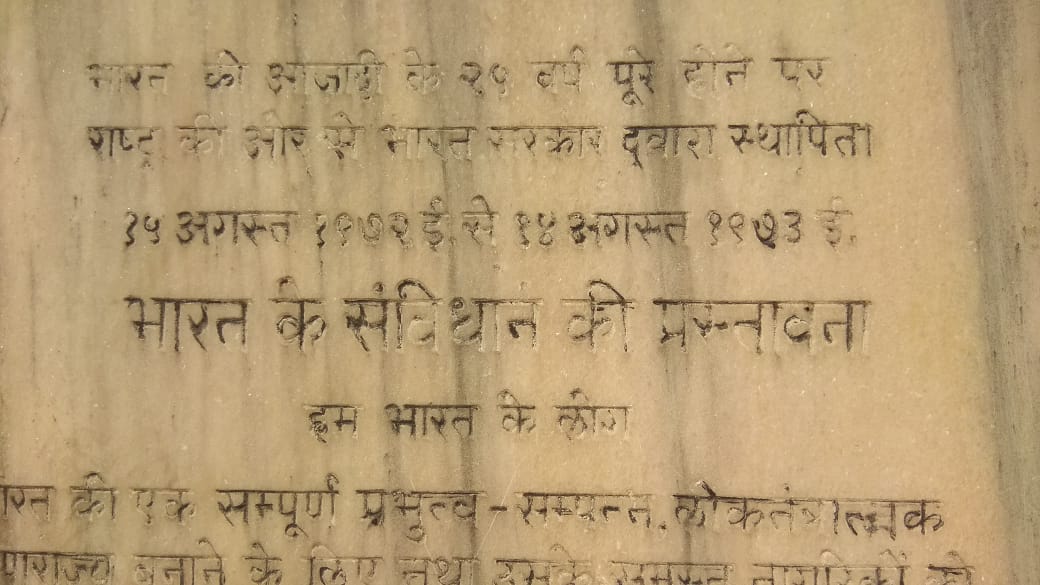 भारत की आजादी के २५ वर्ष पूरे होने पर
राष्ट्र की ओर से भारत सरकार द्वारा स्थापित।
१५ अगस्त १९७२ ई. से १४ अगस्त १९७३ ई.
भारत के संविधान की प्रस्तावना
हम भारत के लोग
ारत की एक सम्पूर्ण प्रभुत्व-सम्पन्न, लोकतंत्रात्मक
णराज्य बनाने के लिए तथा उसके समस्त नागरिकों को